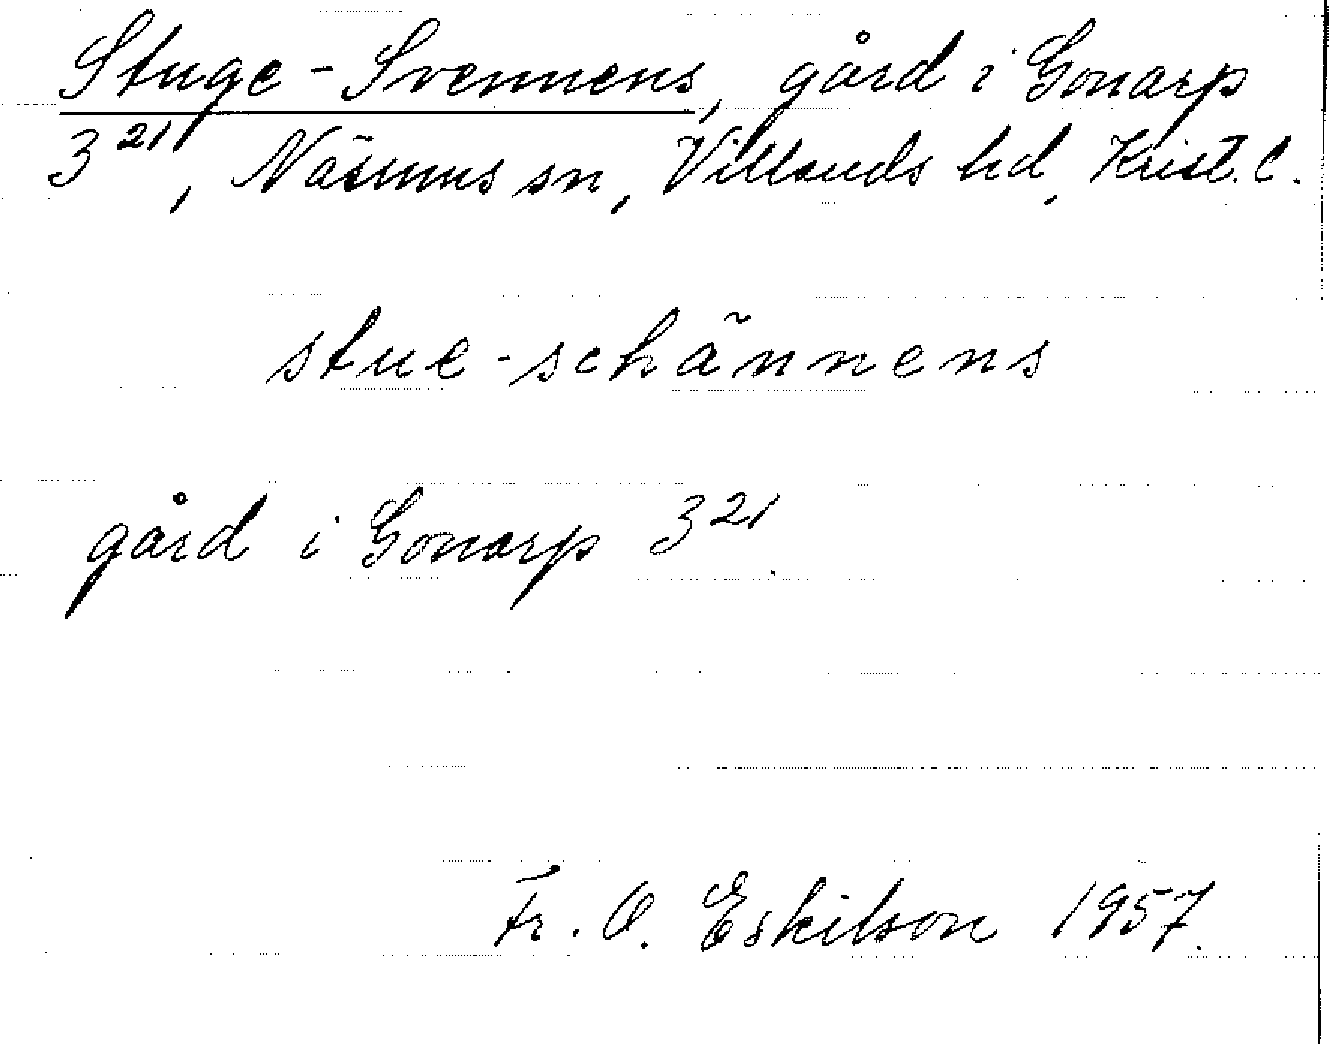 Stuge-Svennens, gård i Gonarp
3²¹, Näsums sn, Villands hd, Krist. l.
stue-schãnnens
gård i Gonarp 3²¹.
Fr. O. Eskilson 1957.